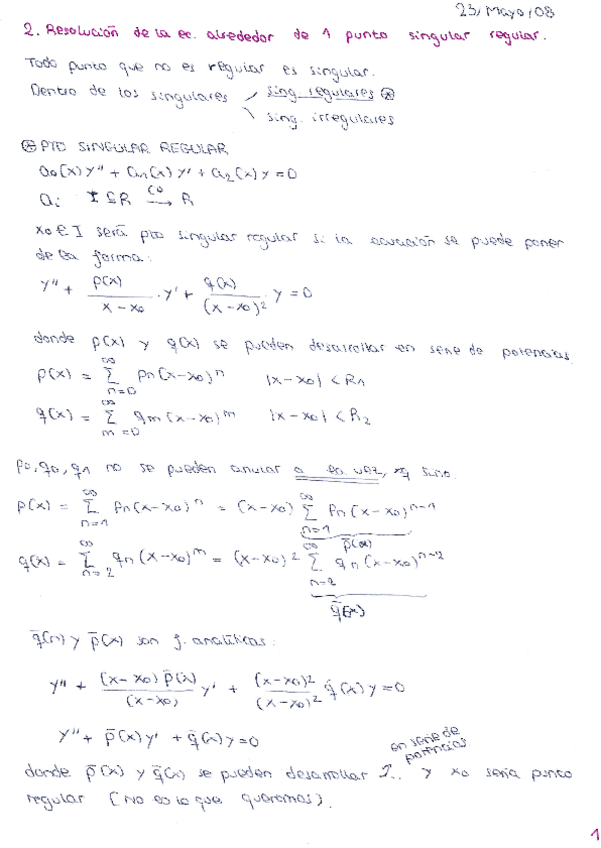 23/Mayo/08
2. Resolución de la ec. alrededor de 1 punto singular regular.
Todo punto que no es regular es singular.
Dentro de los singulares / sing. regulares ⊛
\ sing. irregulares
⊛ PTO SINGULAR REGULAR
a₀(x)y'' + a₁(x)y' + a₂(x)y = 0
aᵢ: I ⊆ R —C⁰→ R
x₀ ∈ I será pto singular regular si la ecuación se puede poner
de la forma:
y'' + p(x)/(x-x₀) · y' + q(x)/(x-x₀)² · y = 0
donde p(x) y q(x) se pueden desarrollar en serie de potencias
p(x) = ∑_{n=0}^{∞} pn(x-x₀)ⁿ |x-x₀| < R₁
q(x) = ∑_{m=0}^{∞} qm(x-x₀)ᵐ |x-x₀| < R₂
p₀, q₀, q₁ no se pueden anular a la vez, xq sino:
p(x) = ∑_{n=1}^{∞} pn(x-x₀)ⁿ = (x-x₀) ∑_{n=1}^{∞} pn(x-x₀)ⁿ⁻¹
p̄(x)
q(x) = ∑_{n=2}^{∞} qn(x-x₀)ᵐ = (x-x₀)² ∑_{n=2}^{∞} qn(x-x₀)ⁿ⁻²
q̄(x)
q̄(x) y p̄(x) son f. analíticas:
y'' + (x-x₀)p̄(x)/(x-x₀) y' + (x-x₀)²/(x-x₀)² q̄(x)y = 0
y'' + p̄(x)y' + q̄(x)y = 0
en serie de
potencias
donde p̄(x) y q̄(x) se pueden desarrollar ↑.. y x₀ sería punto
regular (No es lo que queremos).
1